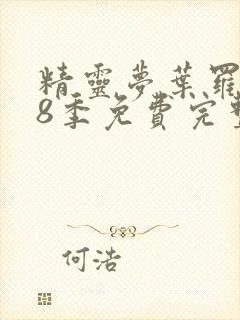 精靈夢葉羅
8季免費完整
何浩